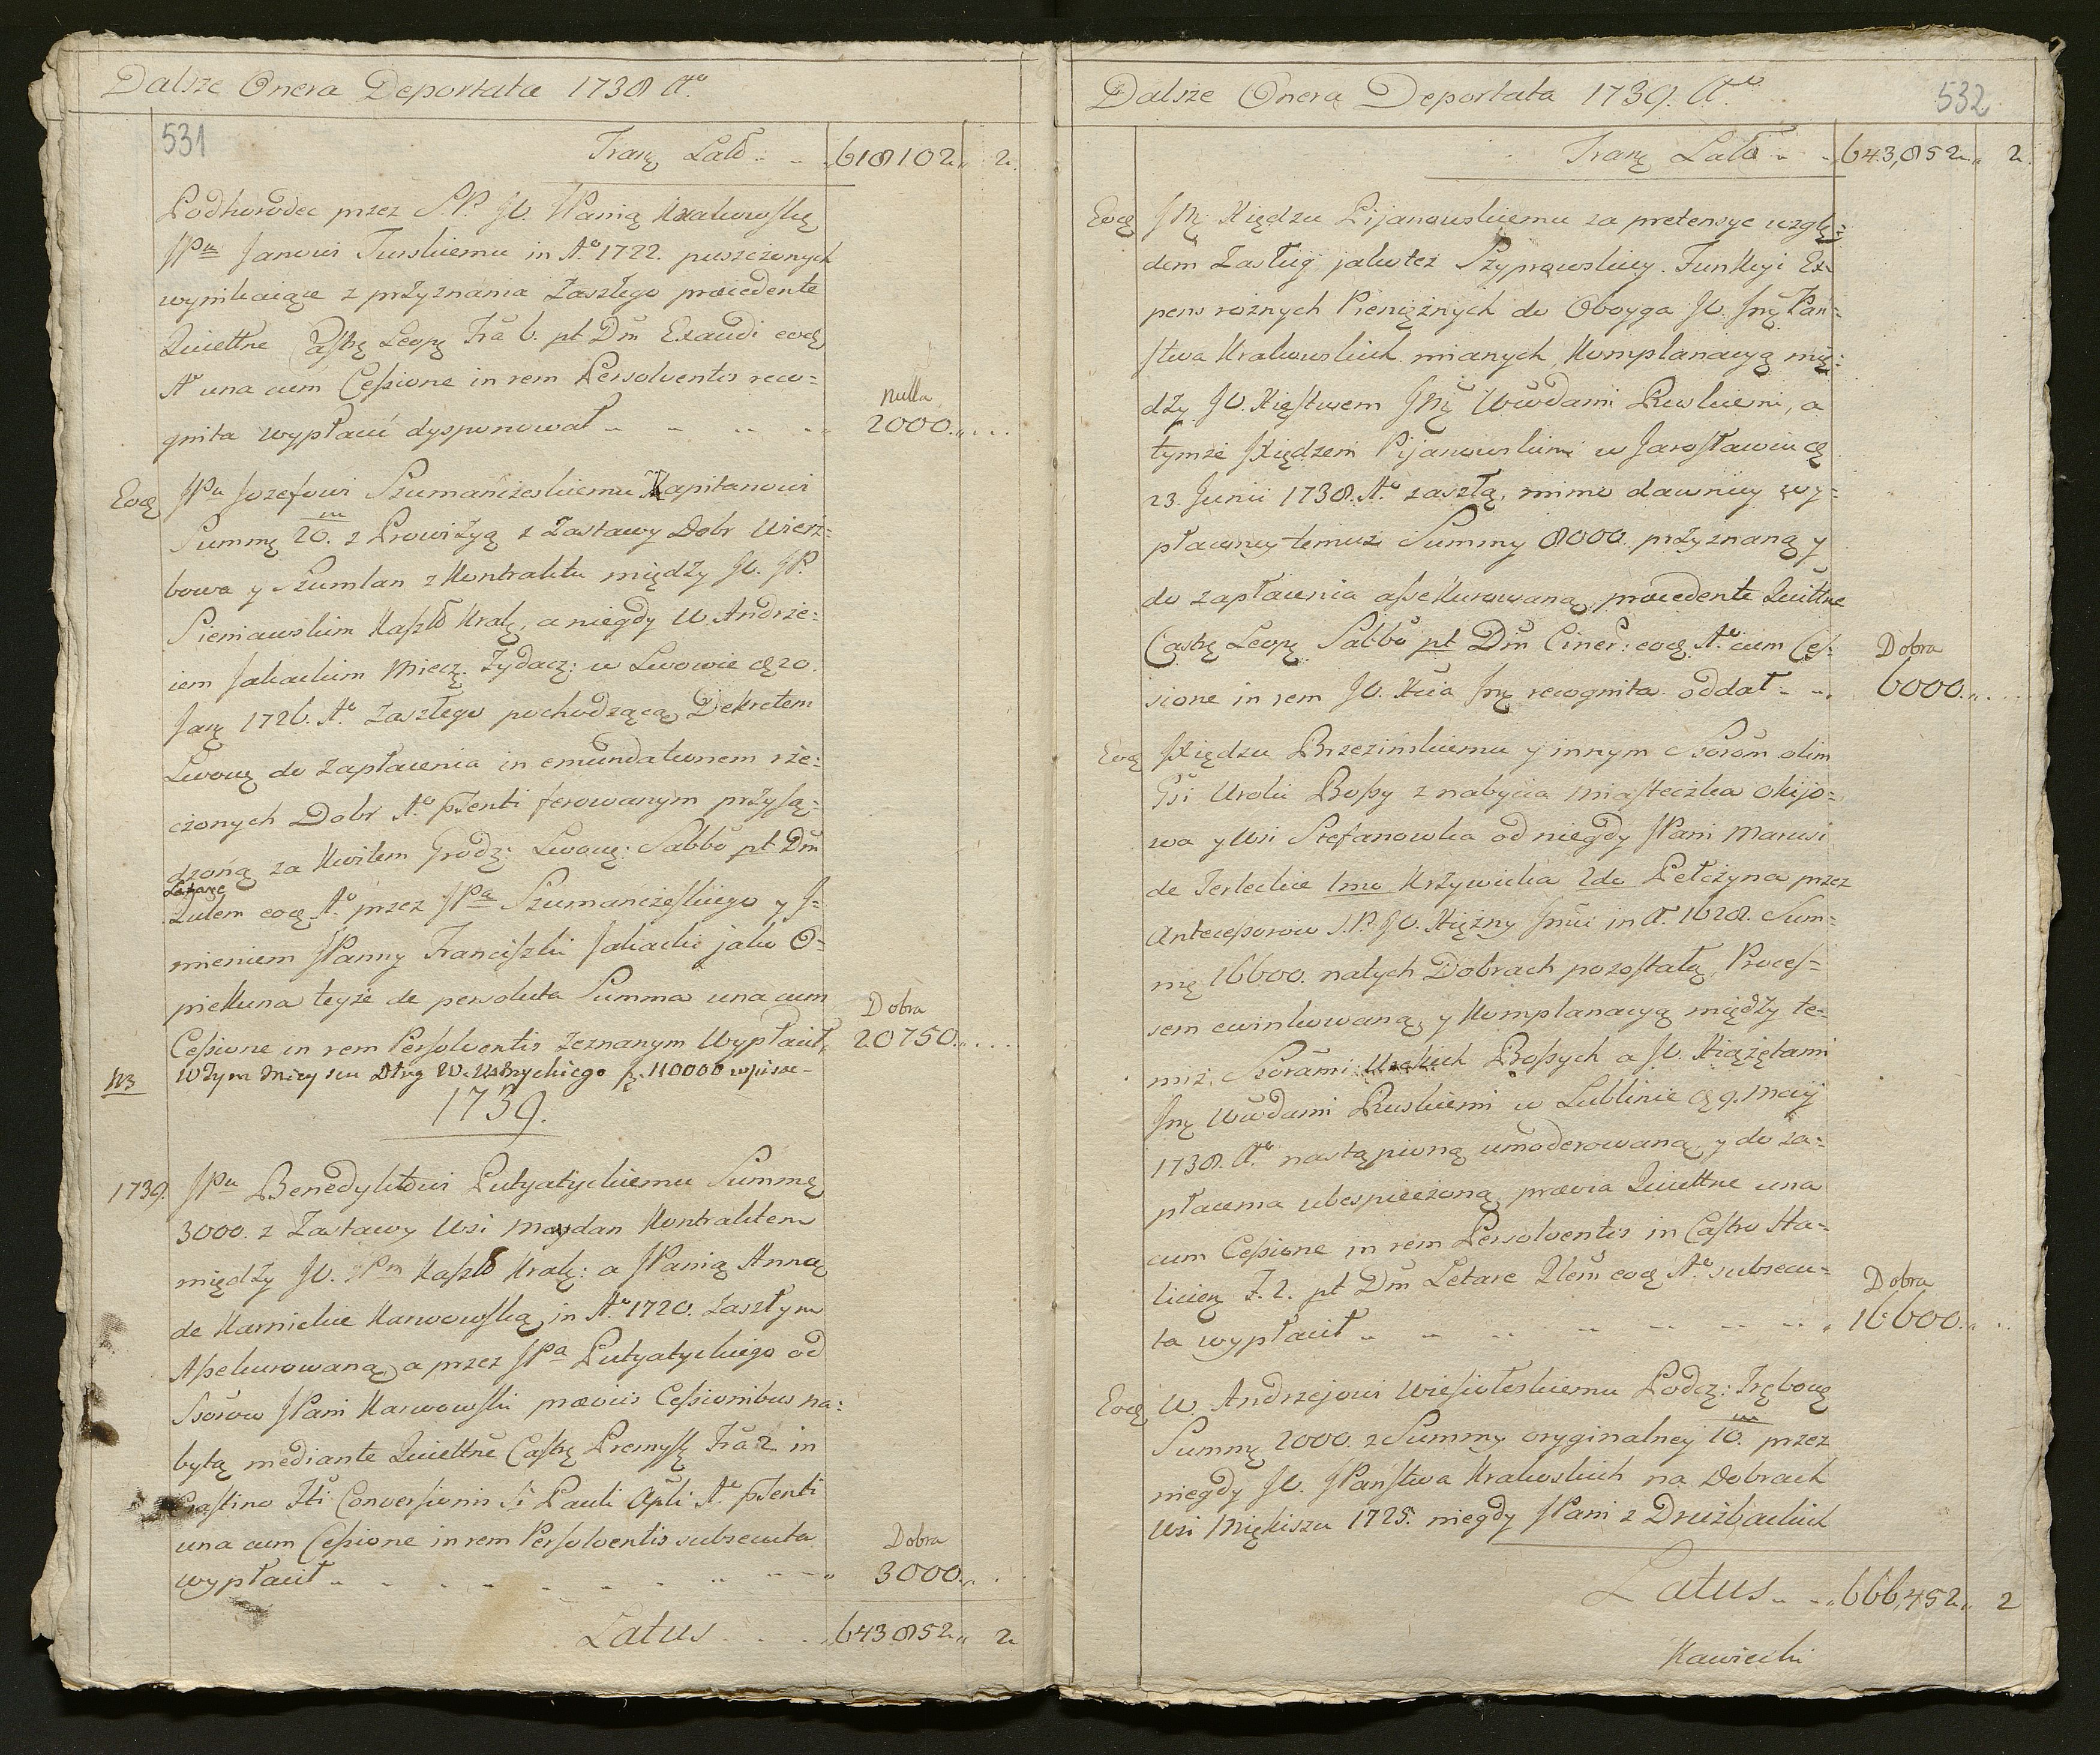 Dalsze Onera Deportata 1738 Aº
531
Tranz Lat̃o .. .. 618102 „ 2.
Podhorodec przez S.P. JW. JPanią Krakowską
JPu Janowi Turskiemu in Aº 1722. puszczonych
wynikaiące z przyznania Zaszłego præcedente
Quiettne Castrz Leopz Fra 6. pt Dm̃ Exaudi eodz
Aº una cum Cessione in rem Persolventis reco=
gnita wypłacić dysponował .. .. .. .. nulla
2000 „ ...
Eodz JPu Jozefowi Szumanczeskiemu Kapitanowi
Summę 20.m z Prowizyą z Zastawy Dobr Wierz=
bowa y Szumlan z Kontraktu między JW. JP.
Sieniawskim Kaszt̃ Krak, a niegdy W. Andrze=
iem Jakackim Miecz. Zydacz: w Lwowie d 20.
Janz 1726. Aº Zaszłego pochodzącą, Dekretem
Lwowz do Zapłacenia in emundationem rze=
czonych Dobr Aº pst̃enti ferowanym przysą=
dzoną za Kwitem Grodz: Lwowz: Sabbõ pt Dm̃
Lætare
2ulem eodz Aº przez JPa Szumanczeskiego y J=
mieniem JPanny Franciszki Jakacki jako O=
piekuna teyże de persoluta Summa una cum Dobra
Cessione in rem Persolventis Zeznanym Wypłacił „ 20750 „ ...
NB W Tym Mieyscu Dług W. Ustrzyckiego p. 110000 wpisze-
1739.
1739. JPu Benedyktowi Putyatyckiemu Summę
3000. z Zastawy Wsi Maydan Kontraktem
między JW. JPm Kaszt̃ Krak: a JPanią Anną
de Karnickie Karwowską in Aº 1720. zaszłym
Assekurowaną, a przez JPa Putyatyckiego od
Ssorow JPani Karwowski præviis Cessionibus na=
bytą mediante Quiettñe Castrz Premysłz Fra 2 in
Crastino Fti Conversionis S̃i Pauli Apli Aº pst̃enti
una cum Cessione in rem Persolventis subsecuta Dobra
wypłacił .. .. .. .. .. .. .. 3000 „ .
Latus .. .. „ 643 852 „ 2
Dalsze Onera Deportata 1739. Aº
532
Tranz Lat̃o .. .. 643,852 „ 2.
Eodz JMz Xiędzu Pijanowskiemu za pretensye wzglę=
dem Zasług jakotez Szyprowskiey Funkcyi Ex=
pens roznych Pieniężnych do Oboyga JW. Jmz Pan=
stwa Krakowskich mianych Komplanacyą mię=
dzy JW. Xięstwem JMz Wwdami Ruskiemi, a
tymże JXiędzem Pijanowskim w Jarosławiu d
23. Junii 1738. Aº zaszłą, mimo dawniey wy=
płaconey temuz Summy 8000. przyznaną y
do zapłacenia assekurowaną, præcedente Quittne
Castrz Leopz Sabbõ pt Dm̃ Ciner: eodz Aº cum Ces= Dobra
sione in rem JW. Xcia Jmz recognita oddał .. .. 6000 „ ...
Eodz JXiędzu Brzezinskiemu y innym Ssorom olim
Gsi Uroki Bossy z nabycia Miasteczka Okijo=
wa y Wsi Stefanowka od niegdy JPani Marusi
de Terleckie 1mo Krzywicka 2do Pełczyna przez
Antecessorow S.P. JW. Xiężny Jmci in Aº 1628. Sum=
mę 16600. na tych Dobrach pozostałą, Proces=
sem ewinkowaną, y Komplanacyą między te=
miż Ssorami Urokich Bossych a JW. Xiążętami
Jmz Wwdami Ruskiemi w Lublinie d 9. Maij
1738. Aº nastąpioną umoderowaną, y do za=
płacenia ubespieczoną, prævia Quiettne una
cum Cessione in rem Persolventis in Castro Ha=
licien F. 2. pt Dm̃ Letare 2lem eodz Aº subsecu= Dobra
ta wypłacił .. .. .. .. .. .. .. 16600 „ ..
Eodz W. Andrzejowi Wiesioleskiemu Podcz: Trębowz
Summę 2000. z Summy oryginalney 10.m przez
niegdy JW. JPanstwa Krakoskich na Dobrach
Wsi Miękiszu 1725. niegdy JPani z Druzbackich
Latus .. .. „ 666,452 „ 2
Kawiecki